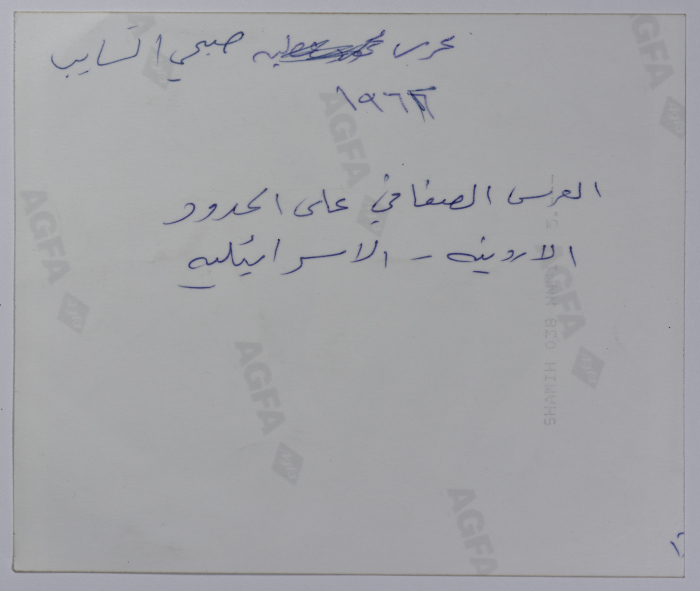 عرس عطيه صبحي السايب
١٩٦٢
العرس الصفافي على الحدود
الاردنيه - الاسرائيليه
AGFA
AGFA
AGFA
AGFA
AGFA
AGFA